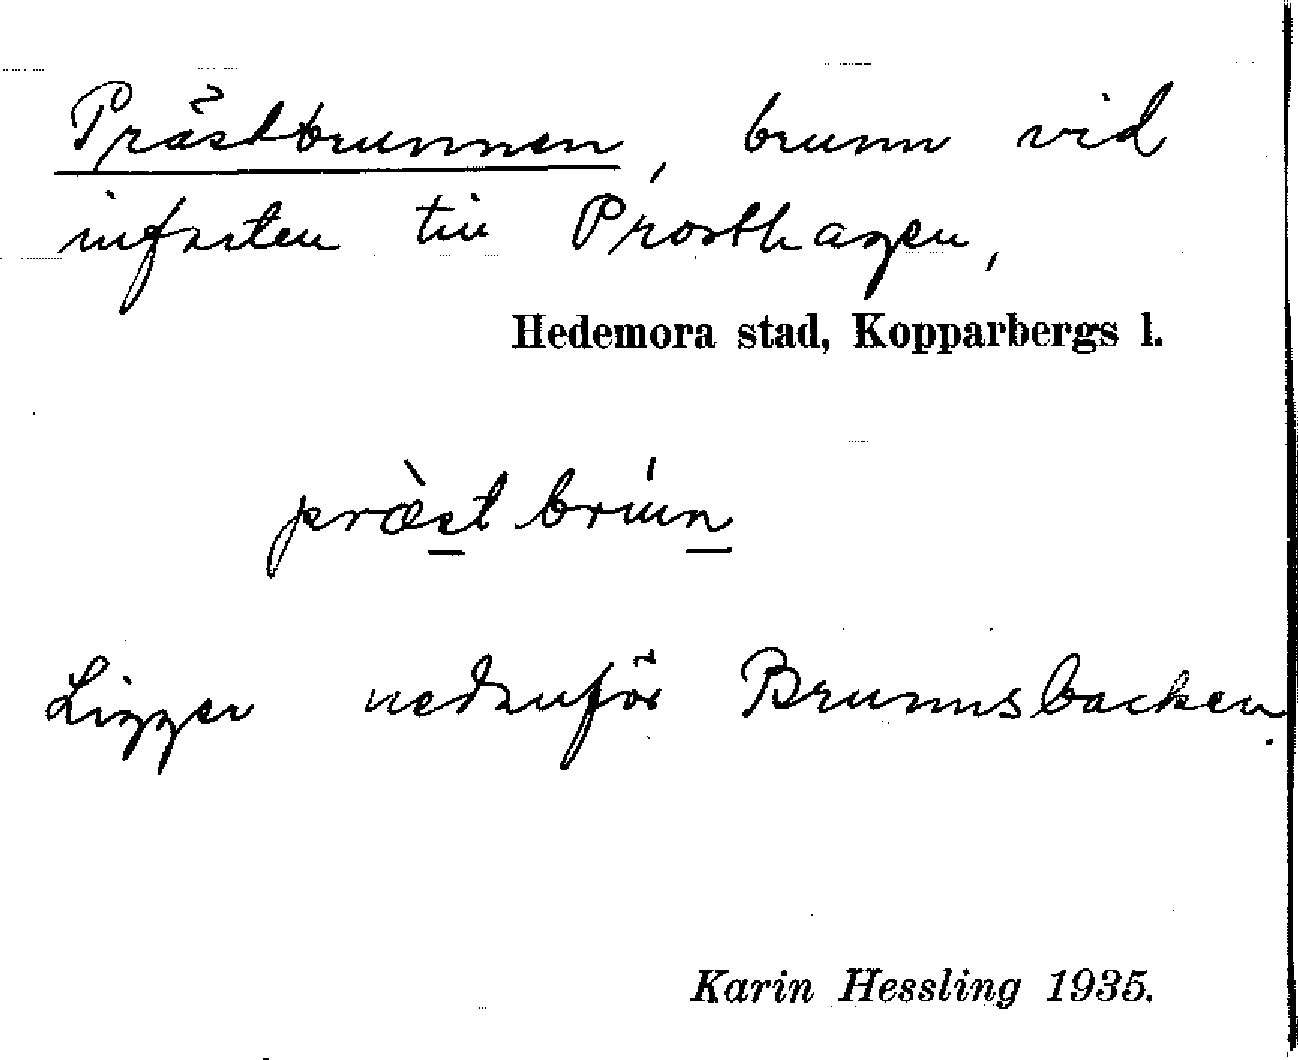 Prästbrunnen, brunn vid
infarten till Prosthagen,
Hedemora stad, Kopparbergs l.
præ̀stbrún
Ligger nedanför Brunnsbacken.
Karin Hessling 1935.